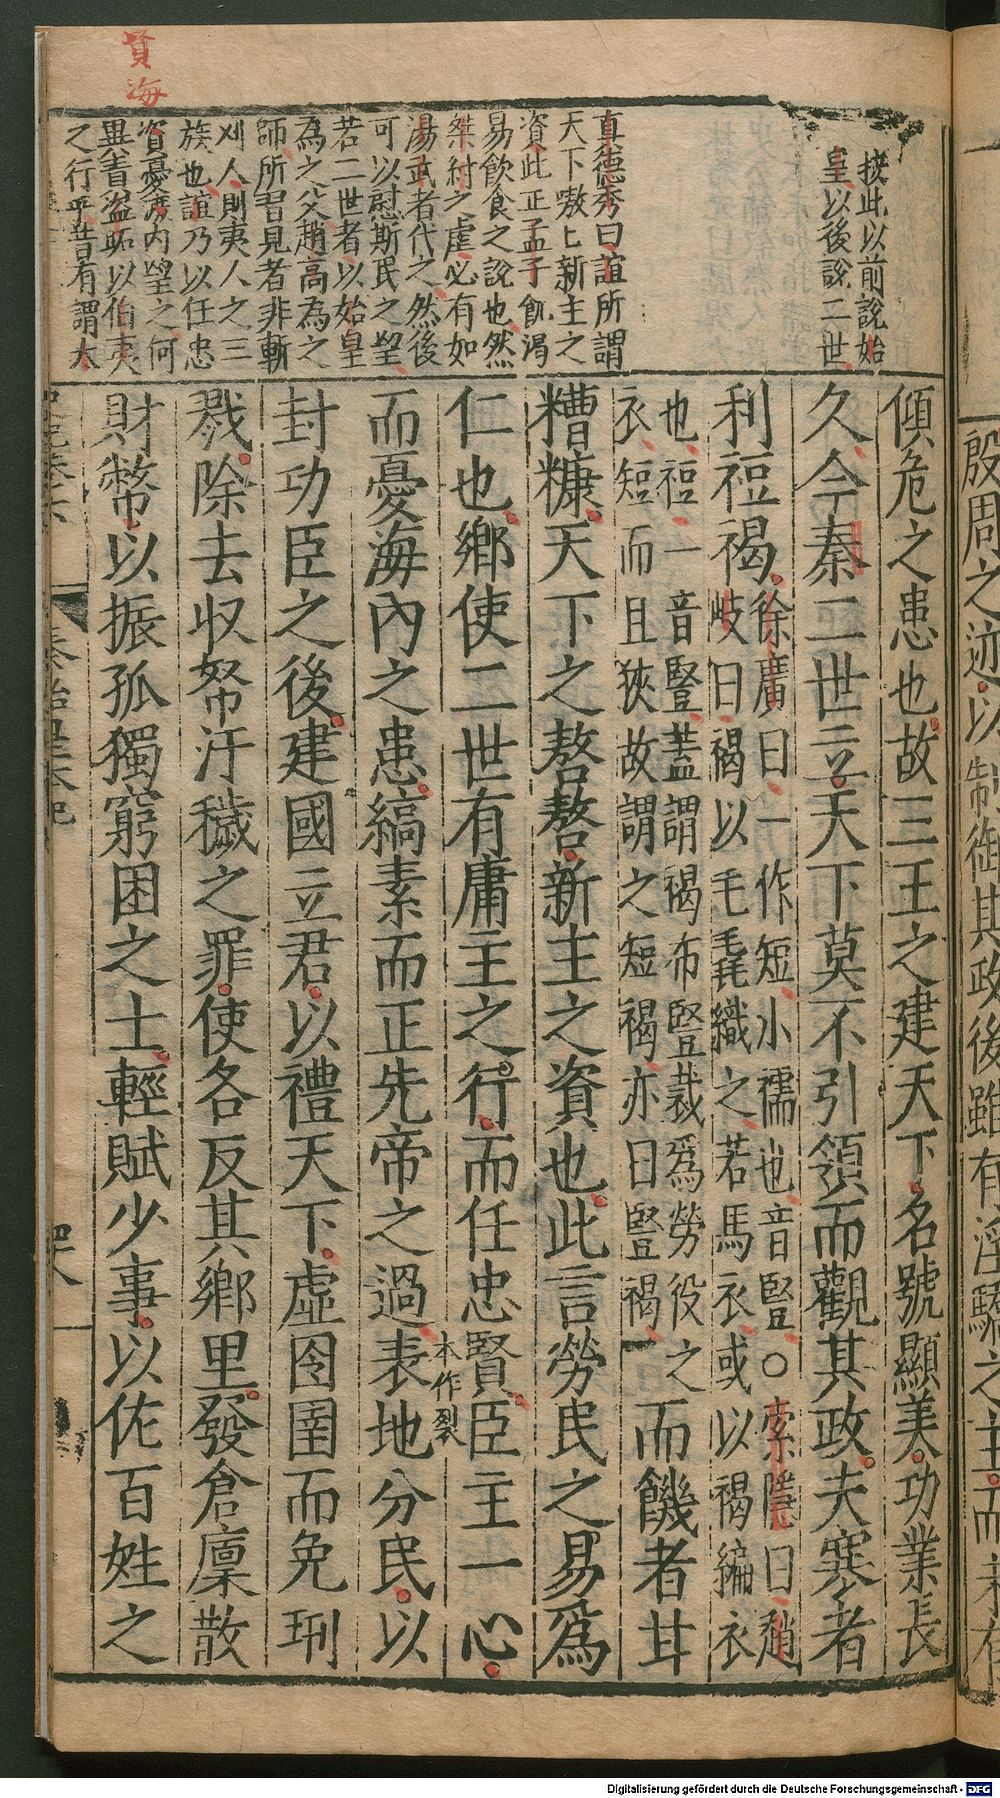 賢海
按此以前説始
皇以後説二世
真德秀曰誼所謂
天下嗷〻新主之
資此正孟子飢渴
易飲食之説也然
桀紂之虐必有如
湯武者代之然後
可以慰斯民之望
若二世者以始皇
為之父趙高為之
師所習見者非斬
刈人則夷人之三
族也誼乃以任忠
資憂海内望之何
異責盗跖以伯夷
之行乎昔有謂太
傾危之患也故三王之建天下名號顯美功業長
久今秦二世立天下莫不引領而觀其政夫寒者
利裋褐
徐廣曰一作短小襦也音豎○索隱曰趙
岐曰褐以毛毳織之若馬衣或以褐編衣
也裋一音豎蓋謂褐布豎裁爲勞役之
衣短而且狹故謂之短褐亦曰豎褐
而饑者甘
糟糠天下之嗸嗸新主之資也此言勞民之易爲
仁也鄉使二世有庸主之行而任忠賢臣主一心
而憂海內之患縞素而正先帝之過表
本作裂
地分民以
封功臣之後建國立君以禮天下虛囹圄而免刑
戮除去収帑汙穢之罪使各反其鄉里發倉廩散
財幣以振孤獨窮困之士輕賦少事以佐百姓之
秦始皇本紀
殷周之迹以制御其政後雖有淫驕之主而未有
Digitalisierung gefördert durch die Deutsche Forschungsgemeinschaft - DFG